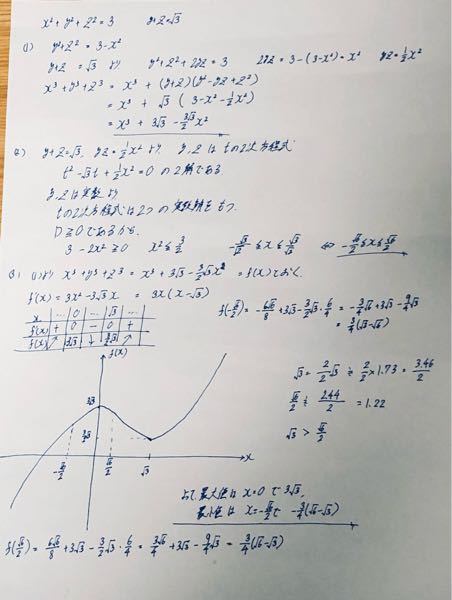 x²+y²+z²=3　y+z=√3
(1) y²+z²=3-x²
y+z=√3 より y²+z²+2yz=3　2yz=3-(3-x²)=x²　yz=½x²
x³+y³+z³ = x³+(y+z)(y²-yz+z²)
= x³+√3(3-x²-½x²)
= x³+3√3-3√3/2 x²
(2) y+z=√3, yz=½x² より y,zはtの2次方程式
t²-√3t+½x²=0 の2解である
y,zは実数より
tの2次方程式は2つの実数解をもつ
D≧0であるから
3-2x²≧0　x²≦3/2　-√3/√2≦x≦√3/√2　⇔ -√6/2≦x≦√6/2
(3) (1)より x³+y³+z³=x³+3√3-3/2√3x²=f(x)とおく
f'(x)=3x²-3√3x=3x(x-√3)
x … 0 … √3 …
f'(x) + 0 - 0 +
f(x) ↗ 3√3 ↓ 3/2√3 ↗
f(-√6/2)=-6√6/8+3√3-3/2√3·6/4=-3/4√6+3√3-9/4√3
=3/4(√3-√6)
f(x)
3√3
3/2√3
-√6/2　√6/2　√3　x
√3=2/2√3≒2/2×1.73=3.46/2
√6/2≒2.44/2=1.22
√3>√6/2
よって最大値は x=0で3√3,
最小値は x=-√6/2で -3/4(√6-√3)
f(√6/2)=6√6/8+3√3-3/2√3·6/4=3√6/4+3√3-9/4√3=3/4(√6-√3)